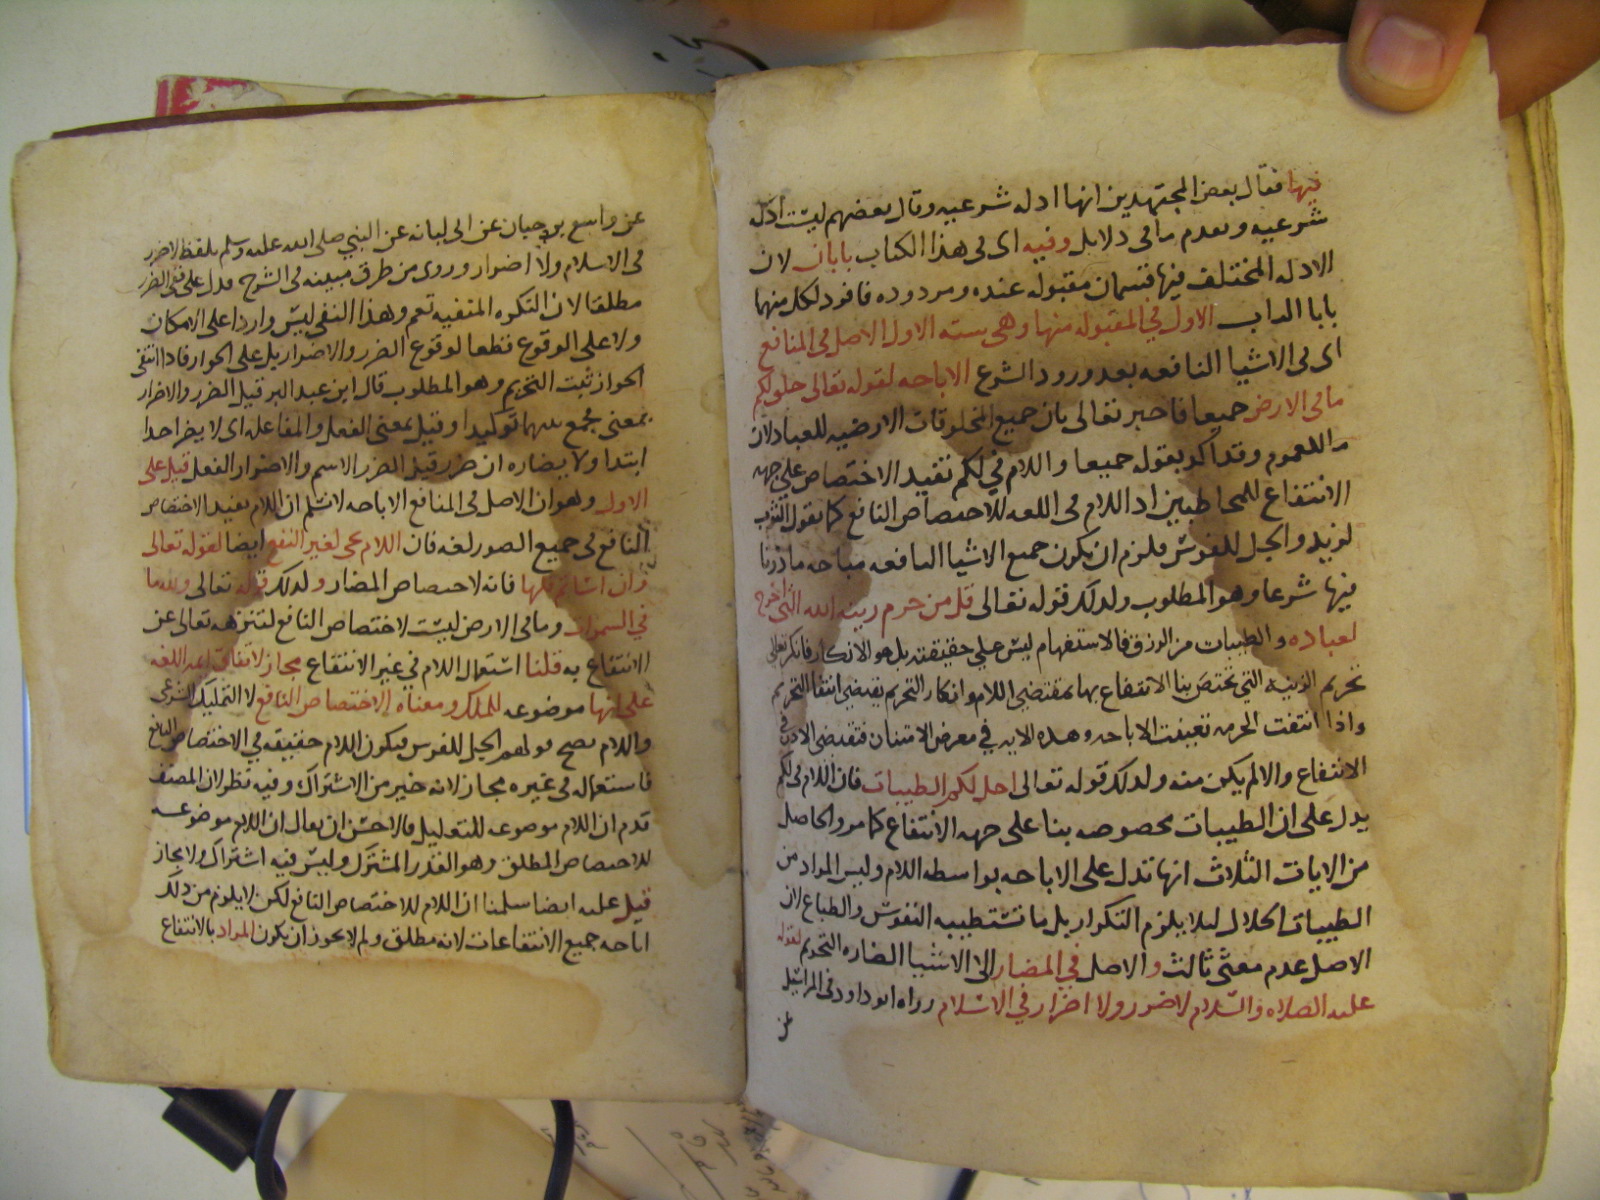 فيها فقال بعض المجتهدين انها ادله شرعيه وقال بعضهم ليست ادله
شرعيه وتعدم ما في دلايل وفيه اى فى هذا الكتاب بابان لان
الادله المختلف فيها قسمان مقبوله عنده ومردوده فافرد لكل منها
بابا الباب الاول في المقبوله منها وهى سته الاول الاصل فى المنافع
اى فى الاشيا النافعه بعد ورود الشرع الاباحه لقوله تعالى خلق لكم
ما فى الارض جميعا فاخبر تعالى بان جميع المخلوقات الارضيه للعباد لان
ما للعموم وقد اكد بقوله جميعا واللام في لكم تفيد الاختصاص على جهه
الانتفاع للمخاطبين اذ اللام فى اللغه للاختصاص النافع كما تقول الثوب
لزيد والجل للفرس فلزم ان يكون جميع الاشيا النافعه مباحه ماذونا
فيها شرعا وهو المطلوب ولذلك قوله تعالى قل من حرم زينه الله التي اخرج
لعباده والطيبات من الرزق فالاستفهام ليس على حقيقته بل هو الانكار فانكر تعالى
تحريم الزينه التي تختص بنا الانتفاع بها بمقتضى اللام وانكار التحريم يقتضى انتفا التحريم
واذا انتفت الحرمه تعينت الاباحه وهذه الايه في معرض الامتنان فتقتضى الاذن في
الانتفاع والا لم يكن منه ولذلك قوله تعالى احل لكم الطيبات فان اللام فى لكم
يدل على ان الطيبات مخصوصه بنا على جهه الانتفاع كما مر والحاصل
من الايات الثلاث انها تدل على الاباحه بواسطه اللام وليس المراد من
الطيبات الحلال ليلا يلزم التكرار بل ما تستطيبه النفوس والطباع لان
الاصل عدم معنى ثالث والاصل في المضار اى الاشيا الضاره التحريم لقوله
عليه الصلاه والسلام لا ضرر ولا اضرار في الاسلام رواه ابو داود فى المراسيل
عن
عن واسع بن حبان عن ابى لبابه عن النبي صلى الله عليه وسلم بلفظ لا ضرر
فى الاسلام ولا اضرار وروى من طرق مبينه فى الشرح فدل على نفى الضرر
مطلقا لان النكره المنفيه تعم وهذا النفى ليس واردا على الامكان
ولا على الوقوع قطعا لوقوع الضرر والاضرار بل على الجواز فاذا انتفى
الجواز ثبت التحريم وهو المطلوب قال ابن عبد البر قيل الضرر والاضرار
بمعنى جمع بينهما توكيدا وقيل بمعنى الفعل والمفاعله اى لا يضر احدا
ابتدا ولا يضاره ان ضرر قيل الضرر الاسم والاضرار الفعل قيل على
الاول وهو ان الاصل فى المنافع الاباحه لا نسلم ان اللام تفيد الاختصاص
النافع فى جميع الصور لغه فان اللام تجى لغير النفع ايضا لقوله تعالى
وان اساتم فلها فانه لاختصاص المضار ولذلك قوله تعالى ولله ما
في السموات وما فى الارض ليست لاختصاص النافع لتنزهه تعالى عن
الانتفاع به قلنا استعمال اللام في غير الانتفاع مجاز لاتفاق ايمه اللغه
على انها موضوعه للملك ومعناه الاختصاص النافع لا التمليك الشرعي
واللام يصح قولهم الجل للفرس فيكون اللام حقيقه في الاختصاص النافع
فاستعماله فى غيره مجاز لانه خير من الاشتراك وفيه نظر لان المصنف
قدم ان اللام موضوعه للتعليل فالاحسن ان يقال ان اللام موضوعه
للاختصاص المطلق وهو القدر المشترك وليس فيه اشتراك ولا مجاز
قيل عليه ايضا سلمنا ان اللام للاختصاص النافع لكن لا يلزم من ذلك
اباحه جميع الانتفاعات لانه مطلق ولم لا يجوز ان يكون المراد بالانتفاع